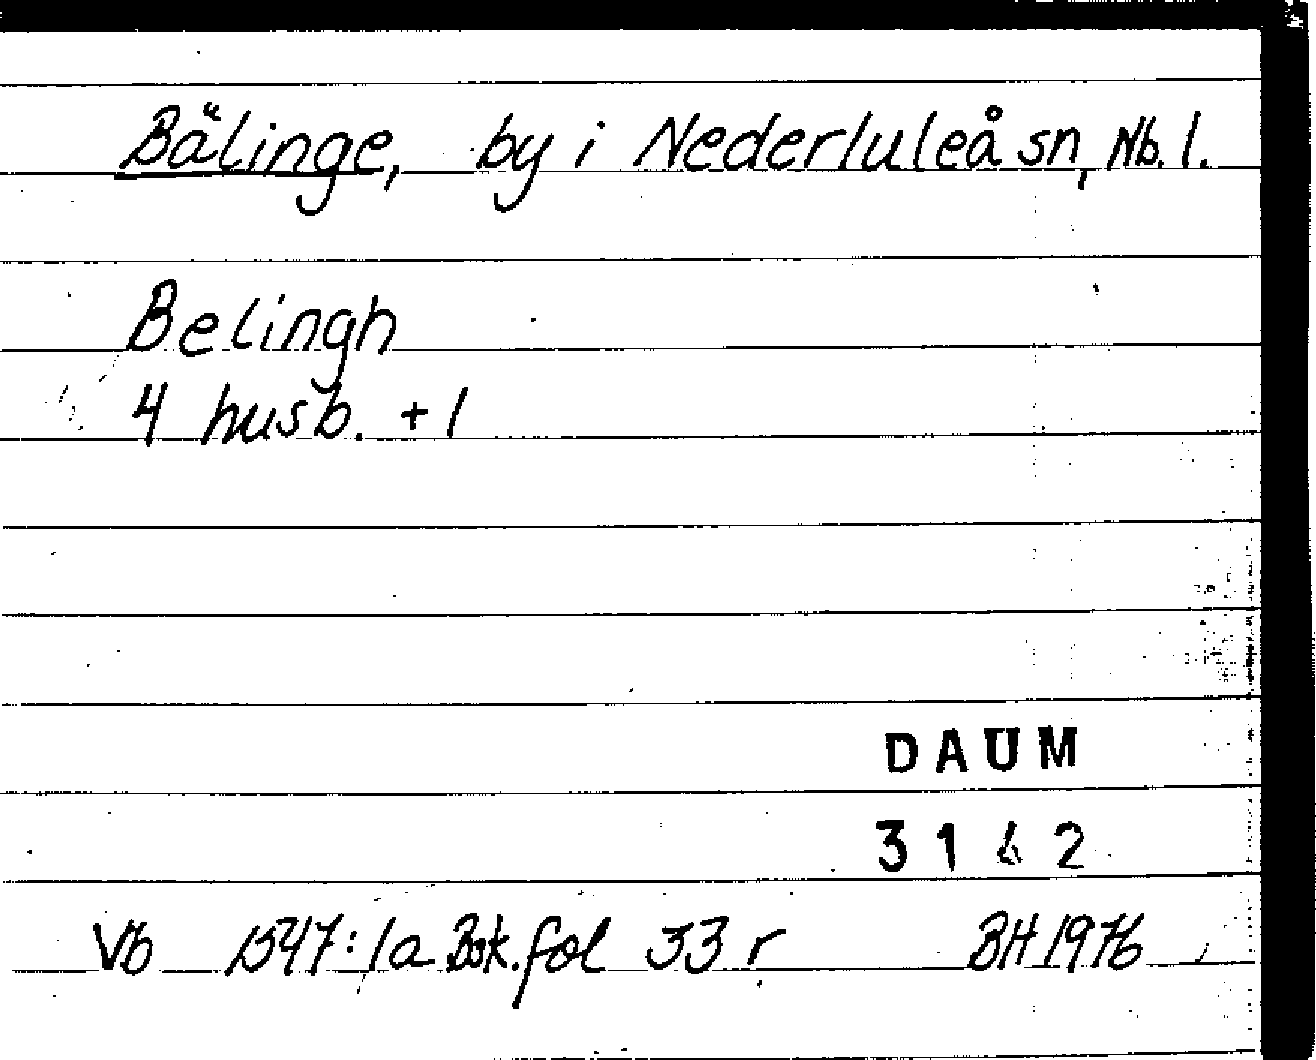 Bälinge, by i Nederluleå sn, Nb. l.
Belingh
4 husb. + 1
DAUM
3162
Vb 1547:1a Bok. fol 33 r BH 1976